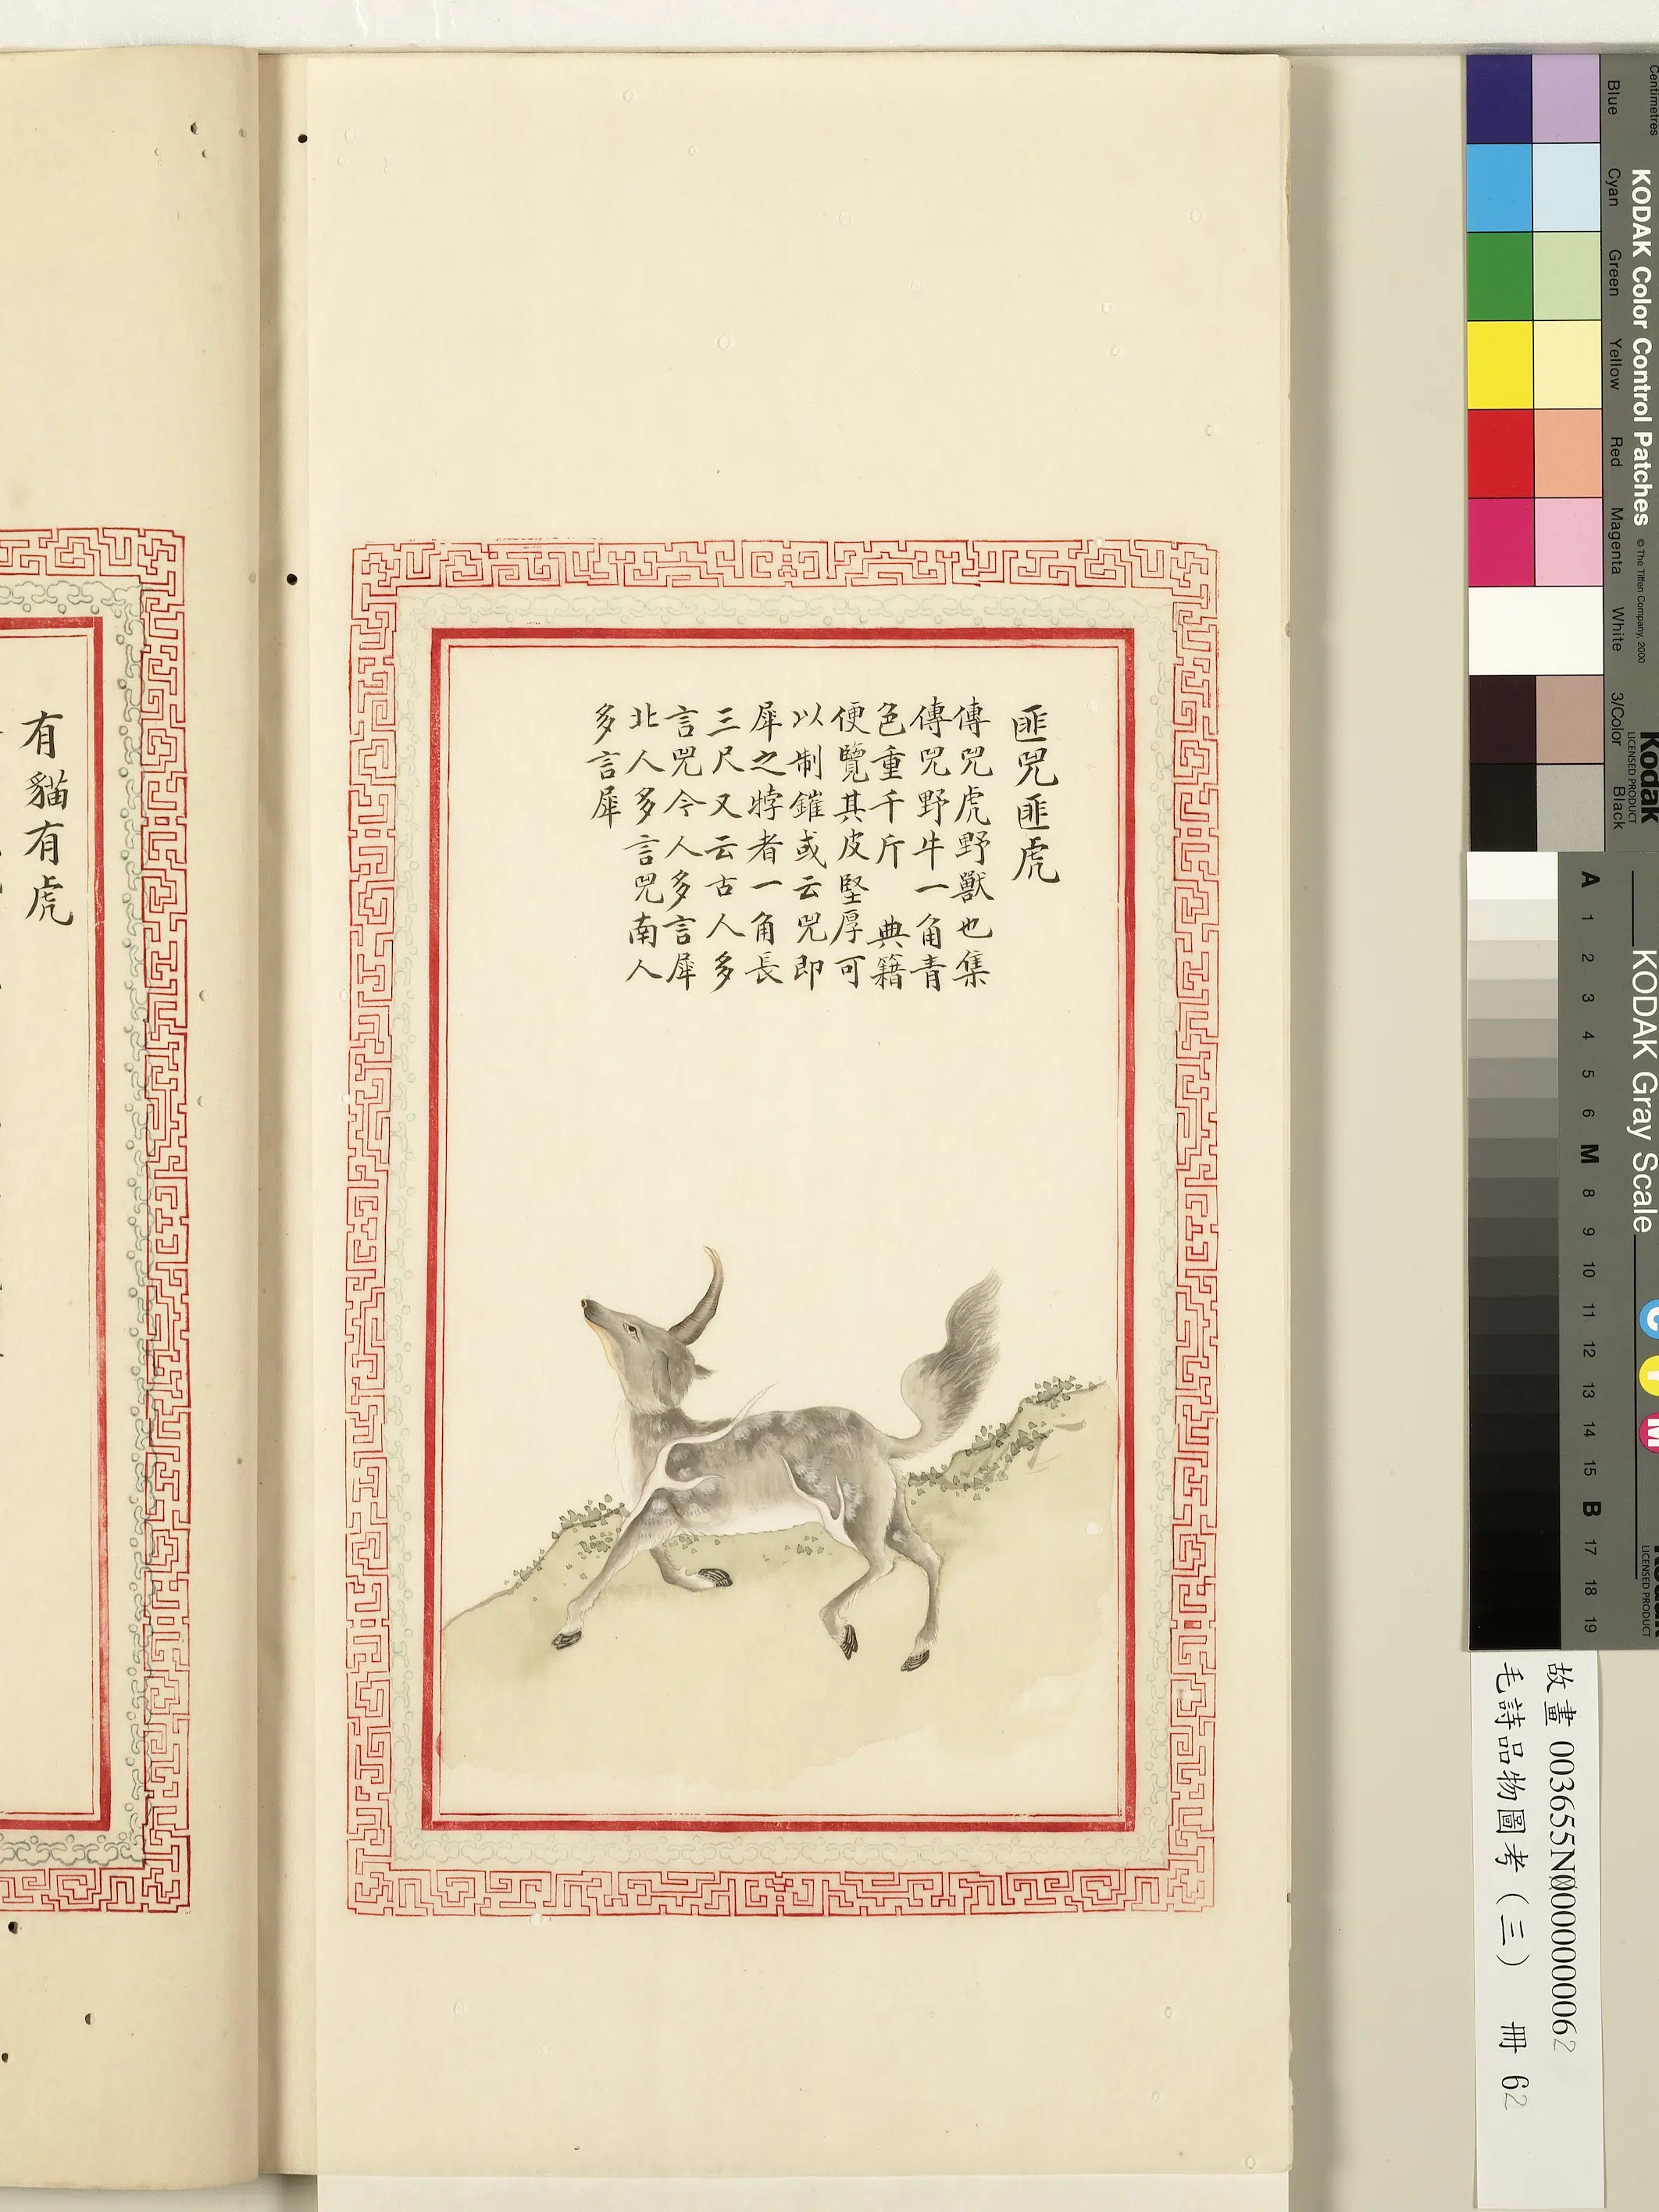 匪兕匪虎
傳兕虎野獸也集
傳兕野牛一角青
色重千斤 典籍
便覽其皮堅厚可
以制鎧或云兕即
犀之牸者一角長
三尺又云古人多
言兕今人多言犀
北人多言兕南人
多言犀
有貓有虎
Centimetres
Blue
Cyan
Green
Yellow
Red
Magenta
White
3/Color
Black
KODAK Color Control Patches
© The Tiffen Company, 2000
Kodak
LICENSED PRODUCT
KODAK Gray Scale
A 1 2 3 4 5 6 M 8 9 10 11 12 13 14 15 B 17 18 19
C
Y
M
LICENSED PRODUCT
故畫 003655N000000062
毛詩品物圖考（三） 冊 62